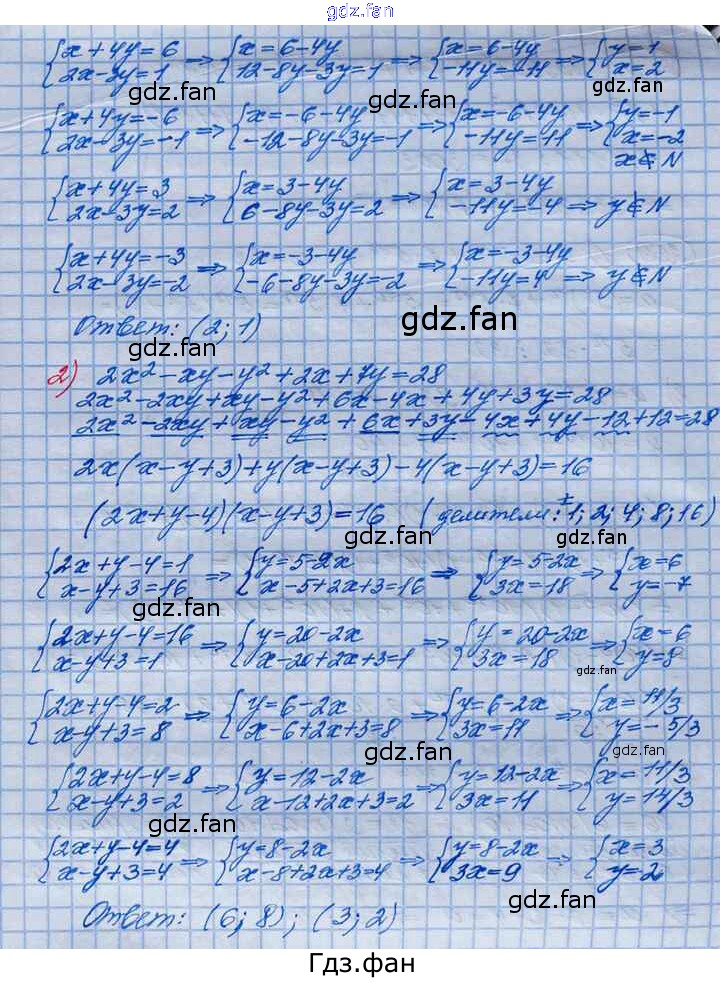 gdz.fan
{x + 4y = 6 2x - 3y = 1 ⇒ {x = 6 - 4y 12 - 8y - 3y = 1 ⇒ {x = 6 - 4y -11y = -11 ⇒ {y = 1 x = 2
gdz.fan gdz.fan gdz.fan
{x + 4y = -6 2x - 3y = -1 ⇒ {x = -6 - 4y -12 - 8y - 3y = -1 ⇒ {x = -6 - 4y -11y = 11 ⇒ {y = -1 x = -2 x ∉ N
{x + 4y = 3 2x - 3y = 2 ⇒ {x = 3 - 4y 6 - 8y - 3y = 2 ⇒ {x = 3 - 4y -11y = -4 ⇒ y ∉ N
{x + 4y = -3 2x - 3y = -2 ⇒ {x = -3 - 4y -6 - 8y - 3y = -2 ⇒ {x = -3 - 4y -11y = 4 ⇒ y ∉ N
Ответ: (2; 1)
gdz.fan gdz.fan
2) 2x² - xy - y² + 2x + 7y = 28
2x² - 2xy + xy - y² + 6x - 4x + 4y + 3y = 28
2x² - 2xy + xy - y² + 6x + 3y - 4x + 4y - 12 + 12 = 28
2x(x - y + 3) + y(x - y + 3) - 4(x - y + 3) = 16
(2x + y - 4)(x - y + 3) = 16 (делители: ± 1; 2; 4; 8; 16)
{2x + y - 4 = 1 x - y + 3 = 16 ⇒ {y = 5 - 2x x - 5 + 2x + 3 = 16 ⇒ {y = 5 - 2x 3x = 18 ⇒ {x = 6 y = -7
gdz.fan gdz.fan
{2x + y - 4 = 16 x - y + 3 = 1 ⇒ {y = 20 - 2x x - 20 + 2x + 3 = 1 ⇒ {y = 20 - 2x 3x = 18 ⇒ {x = 6 y = 8
gdz.fan
{2x + y - 4 = 2 x - y + 3 = 8 ⇒ {y = 6 - 2x x - 6 + 2x + 3 = 8 ⇒ {y = 6 - 2x 3x = 11 ⇒ {x = 11/3 y = -5/3
gdz.fan gdz.fan
{2x + y - 4 = 8 x - y + 3 = 2 ⇒ {y = 12 - 2x x - 12 + 2x + 3 = 2 ⇒ {y = 12 - 2x 3x = 11 ⇒ {x = 11/3 y = 14/3
gdz.fan
{2x + y - 4 = 4 x - y + 3 = 4 ⇒ {y = 8 - 2x x - 8 + 2x + 3 = 4 ⇒ {y = 8 - 2x 3x = 9 ⇒ {x = 3 y = 2
gdz.fan
Ответ: (6; 8); (3; 2)
gdz.fan
Гдз.фан